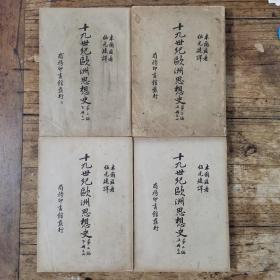 木爾茲著
伍光建譯
十九世紀歐洲思想史
商務印書館發行
木爾茲著
伍光建譯
十九世紀歐洲思想史
商務印書館發行
木爾茲著
伍光建譯
十九世紀歐洲思想史 第一編
商務印書館發行
木爾茲著
伍光建譯
十九世紀歐洲思想史 第一編
商務印書館發行